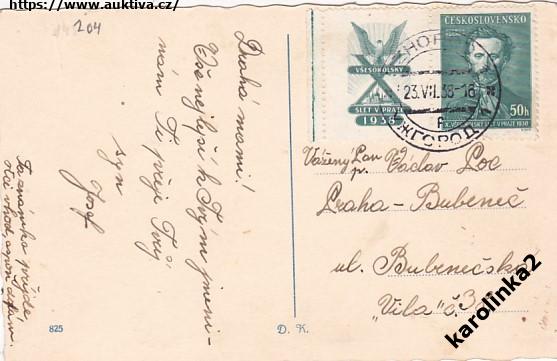 https://www.auktiva.cz/
204
Drahá mami!
Vše nejlepší k Tvým jmeni-
nám Ti přeje Tvůj
syn
Josef
Ta známka přijde
825
D. K.
VŠESOKOLSKÝ
SLET V PRAZE
1938
ČESKOSLOVENSKO
50h
X. VŠESOKOLSKÝ SLET V PRAZE 1938
UŽHOROD
23.VII.38-18
УЖГОРОД
Vážený Pan
p. Václav Loc
Praha-Bubeneč
ul. Bubenečská
"Vila" č. 3
karolinka2